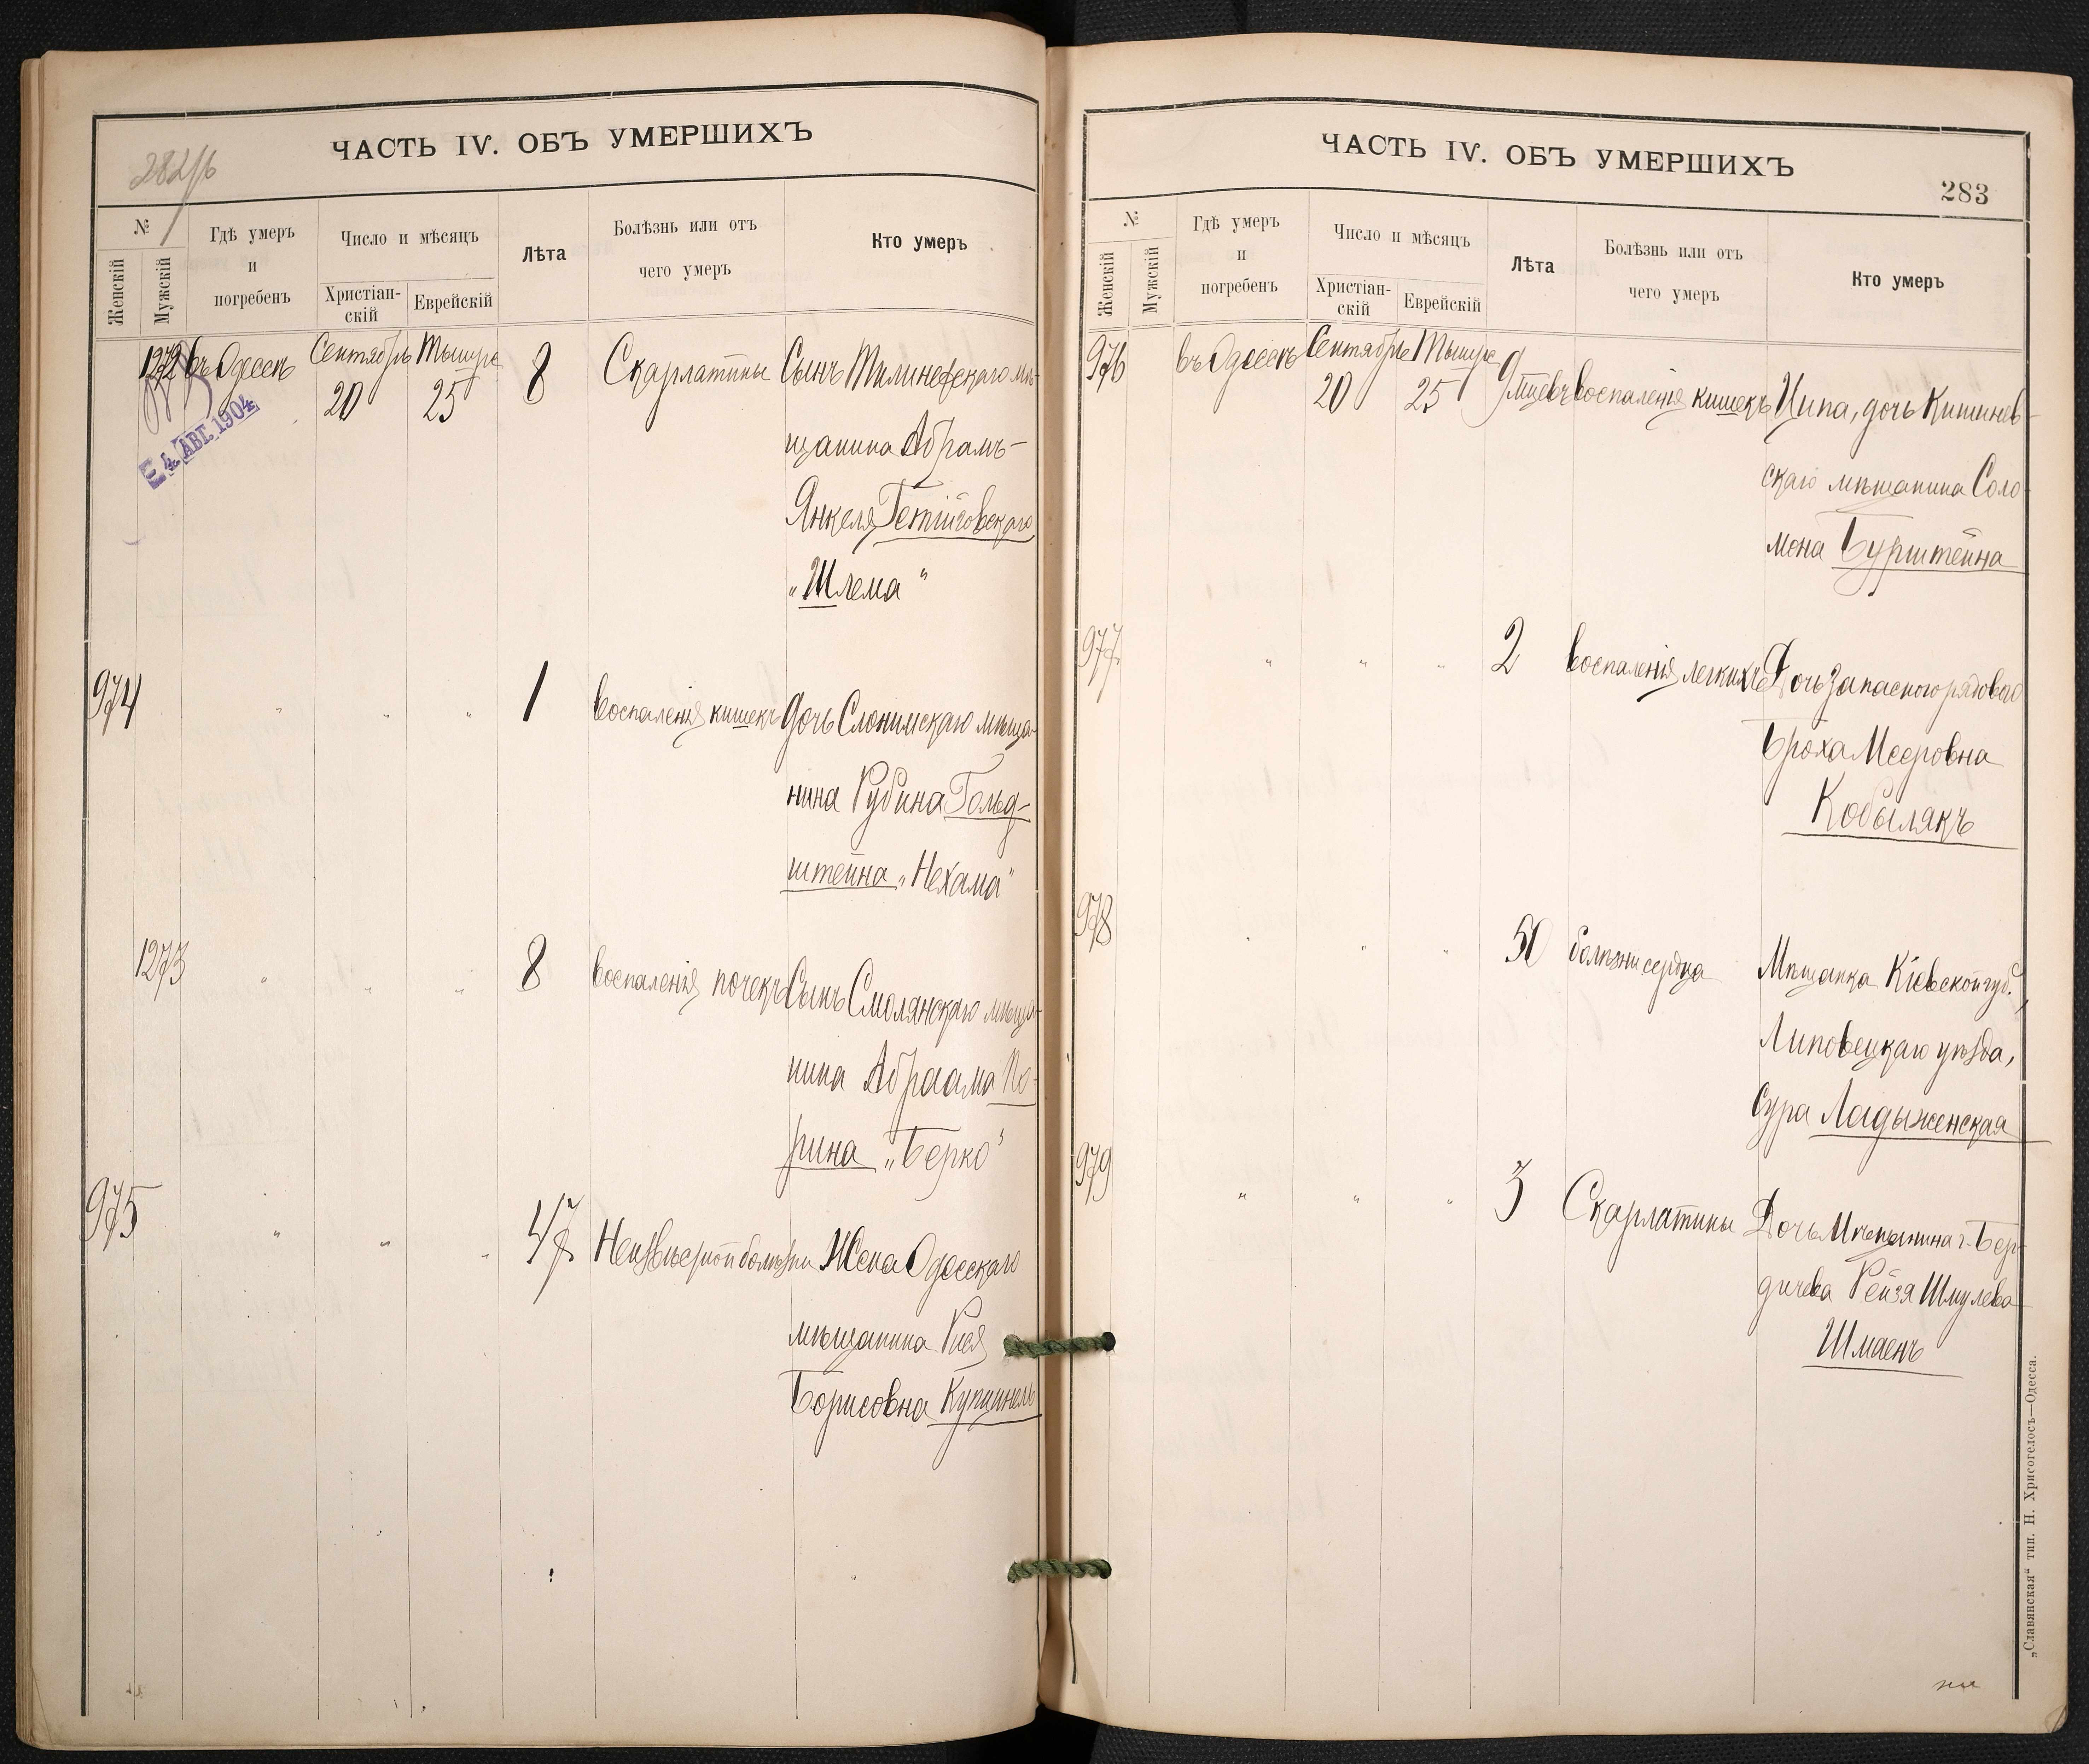 282/б
ЧАСТЬ IV. ОБЪ УМЕРШИХЪ
№
Женскій
Мужскій
Гдѣ умеръ
и
погребенъ
Число и мѣсяцъ
Христіан-
скій
Еврейскій
Лѣта
Болѣзнь или отъ
чего умеръ
Кто умеръ
1272
въ Одессѣ
Сентябрь
20
Тишре
25
8
Скарлатины
Сынъ Тилинефскаго мѣ-
щанина Абрамъ-
Янкеля
„Шлема“
4 АВГ. 1904
974
"
"
"
1
воспаленія кишекъ
дочь Слонимскаго мѣща-
нина Рубина Гольд-
штейна „Нехама“
1273
"
"
"
8
воспаленія почекъ
Сынъ Смолянскаго мѣща-
нина Абраама По-
рина „Берко“
975
"
"
"
47
Неизвѣстной болѣзни
Жена Одесскаго
мѣщанина Рися
Борисовна
ЧАСТЬ IV. ОБЪ УМЕРШИХЪ
283
№
Женскій
Мужскій
Гдѣ умеръ
и
погребенъ
Число и мѣсяцъ
Христіан-
скій
Еврейскій
Лѣта
Болѣзнь или отъ
чего умеръ
Кто умеръ
976
въ Одессѣ
Сентябре
20
Тишре
25
9
мцевъ
воспаленія кишекъ
Ципа, дочь Кишинев-
скаго мѣщанина Соло-
мона Бурштейна
977
"
"
"
2
воспаленія легкихъ
Дочь запасного рядоваго
Броха Мееровна
Кобылякъ
978
"
"
"
50
болѣзни сердца
Мѣщанка Кіевской губ.,
Липовецкаго уѣзда,
Сура Ладыженская
979
"
"
"
3
Скарлатины
Дочь Мѣщанина г. Бер-
дичева Рейзя Шмулева
Шмаенъ
„Славянская“ тип. Н. Хрисогелосъ—Одесса.